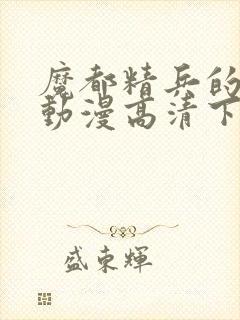 魔都精兵的
動漫高清下
盛東輝